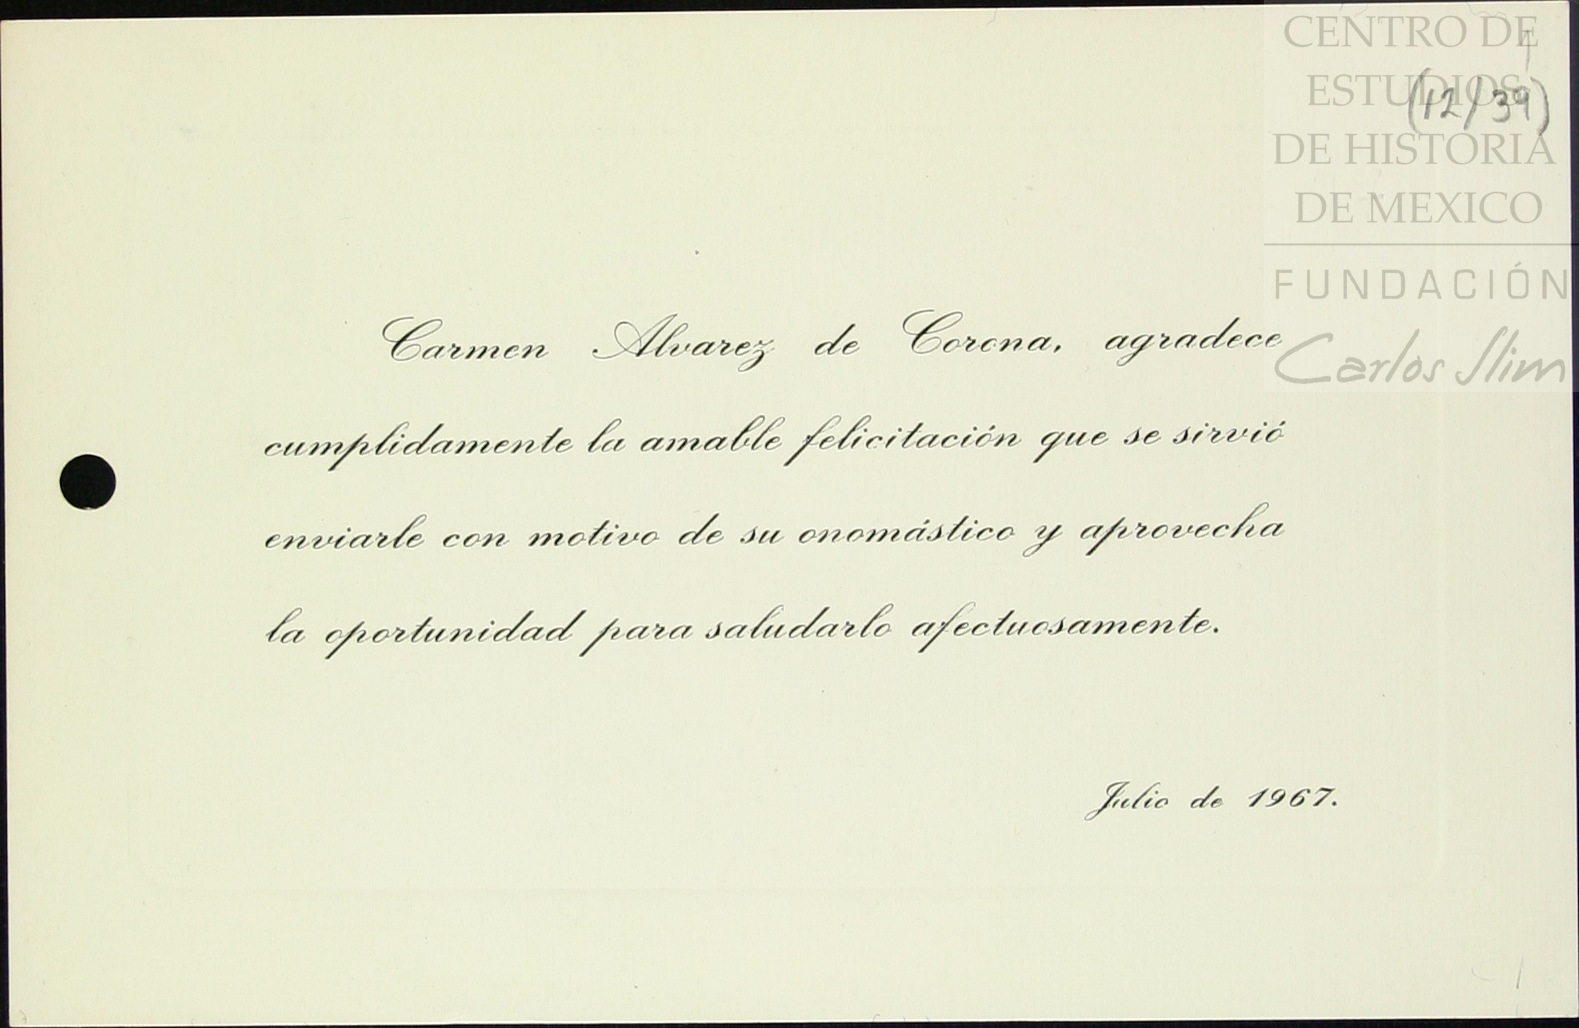 CENTRO DE
ESTUDIOS
(12/39)
DE HISTORIA
DE MEXICO
FUNDACIÓN
Carlos Slim
Carmen Alvarez de Corona, agradece
cumplidamente la amable felicitación que se sirvió
enviarle con motivo de su onomástico y aprovecha
la oportunidad para saludarlo afectuosamente.
Julio de 1967.